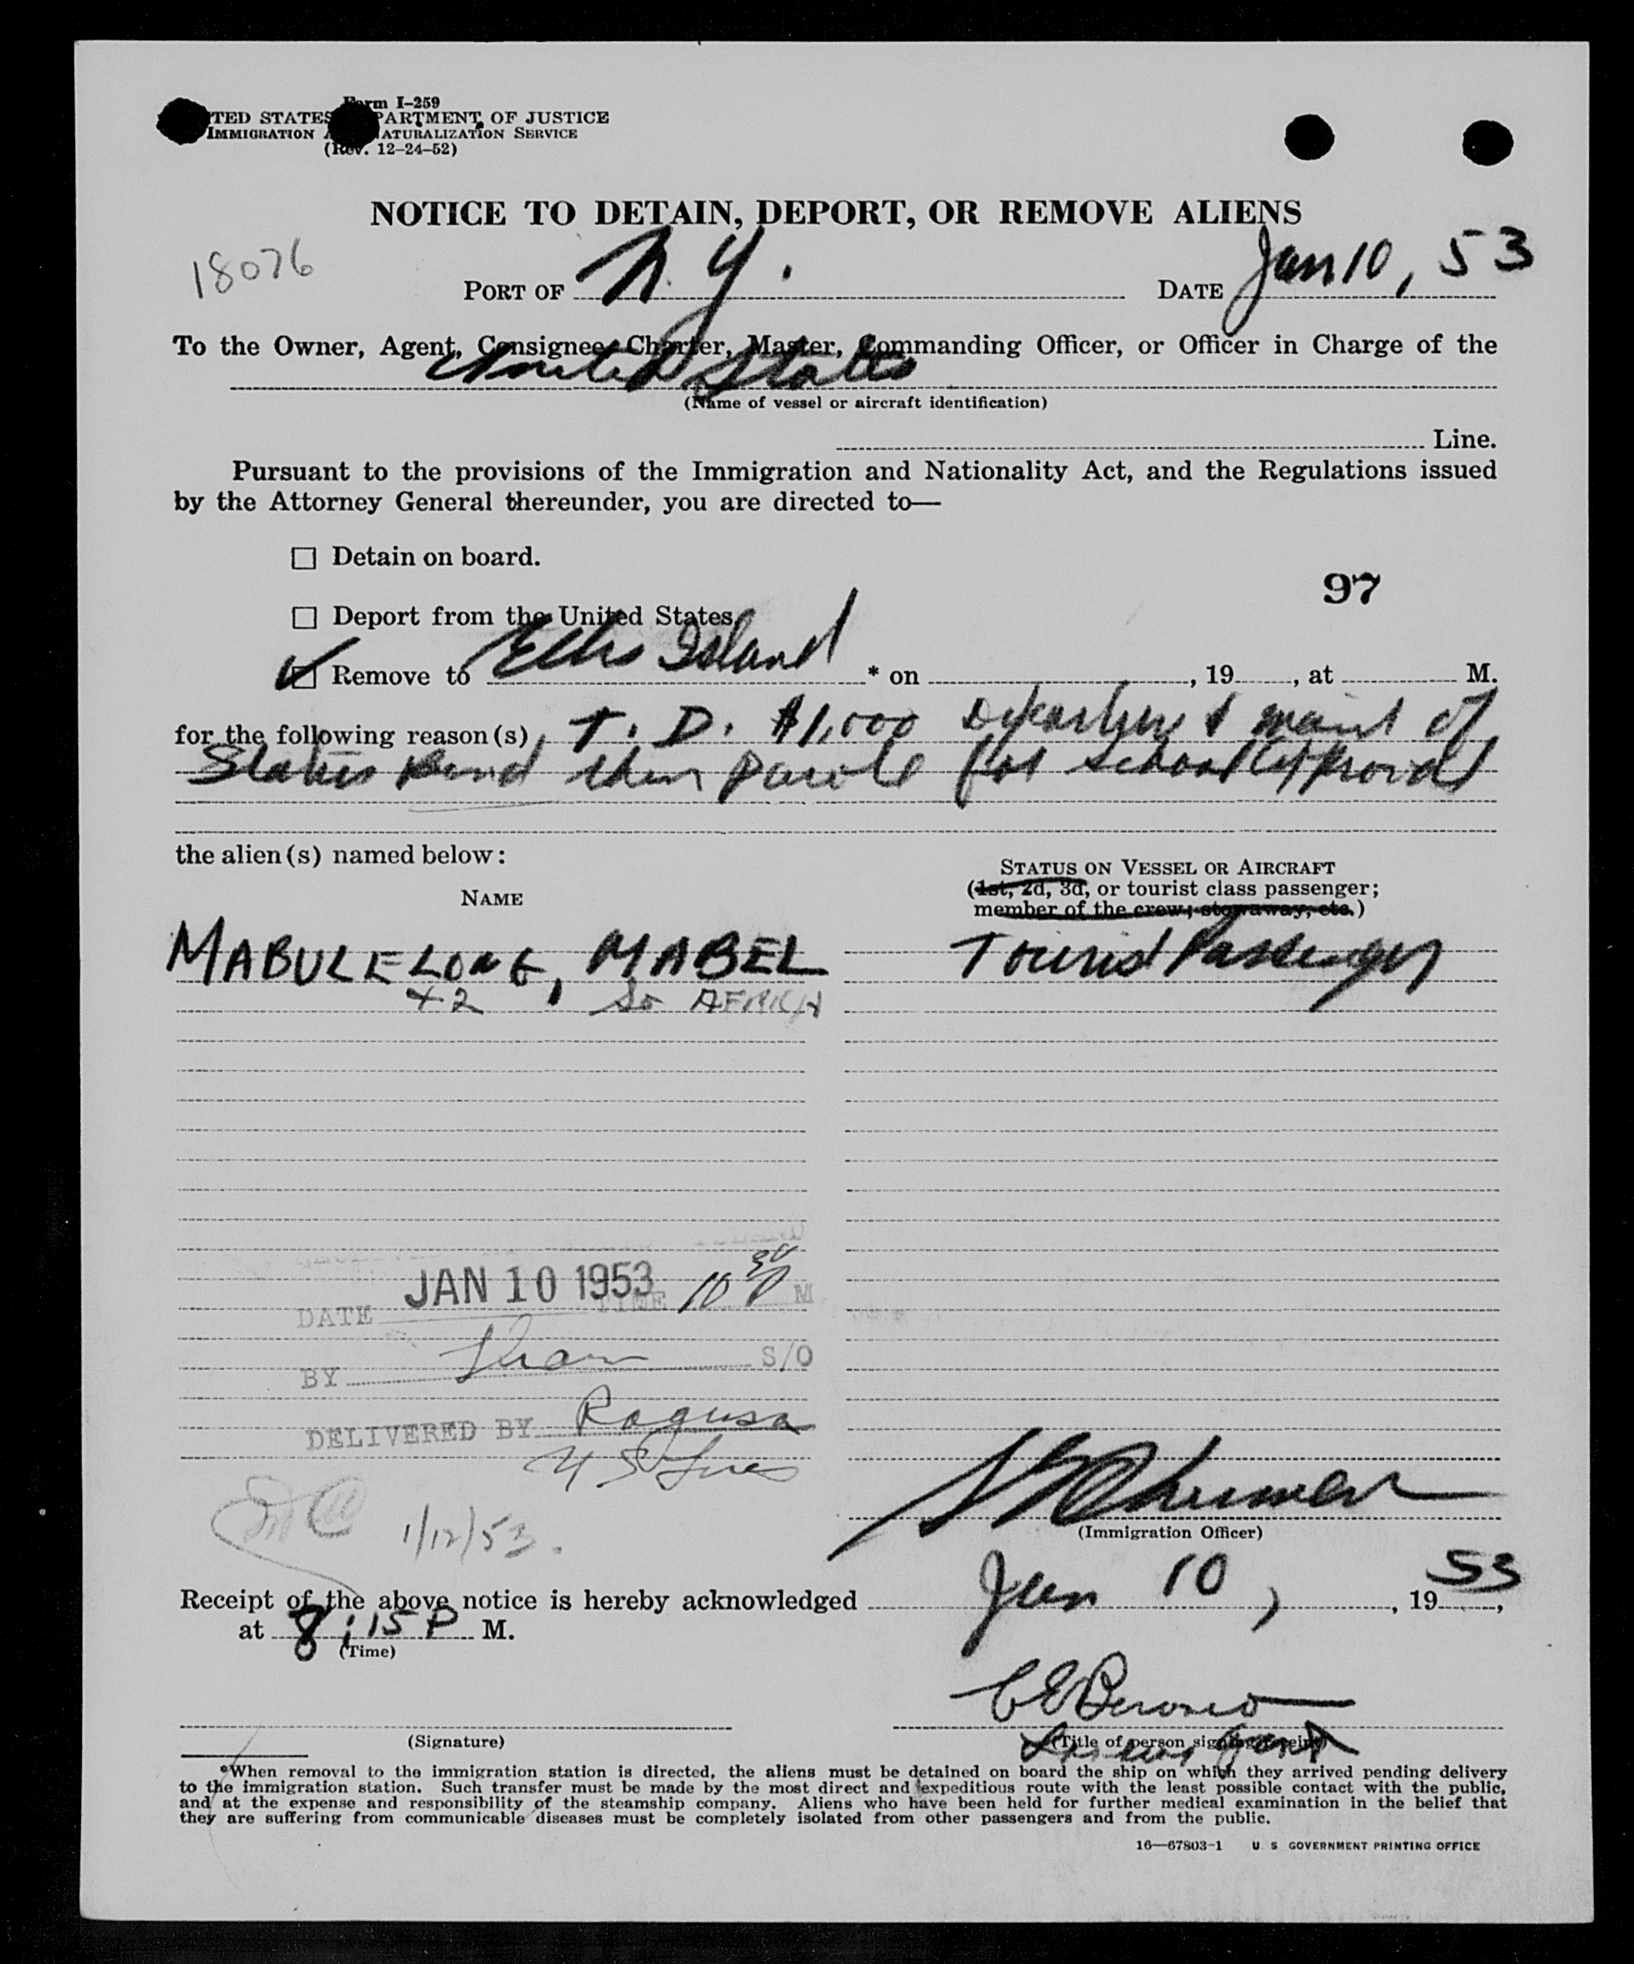 Form I-259
UNITED STATES DEPARTMENT OF JUSTICE
IMMIGRATION AND NATURALIZATION SERVICE
(Rev. 12-24-52)
NOTICE TO DETAIN, DEPORT, OR REMOVE ALIENS
18076
PORT OF N. Y. DATE Jan 10, 53
To the Owner, Agent, Consignee, Charter, Master, Commanding Officer, or Officer in Charge of the
United States
(Name of vessel or aircraft identification)
Line.
Pursuant to the provisions of the Immigration and Nationality Act, and the Regulations issued
by the Attorney General thereunder, you are directed to—
☐ Detain on board.
97
☐ Deport from the United States.
☑ Remove to Ellis Island * on , 19 , at M.
for the following reason(s) T. D. $1,000 Departure & maint of
Status Bond then parole for school approval
the alien(s) named below:
STATUS ON VESSEL OR AIRCRAFT
(1st, 2d, 3d, or tourist class passenger;
member of the crew; stowaway, etc.)
NAME
MABULELONG, MABEL Tourist Passenger
42 So AFRICA
DATE JAN 10 1953 TIME 10 30 M
BY S/O
DELIVERED BY Ragusa
U S Lines
(Immigration Officer)
1/12/53.
Receipt of the above notice is hereby acknowledged Jan 10, 1953,
at 8:15 P M.
(Time)
(Signature) (Title of person signing receipt)
*When removal to the immigration station is directed, the aliens must be detained on board the ship on which they arrived pending delivery
to the immigration station. Such transfer must be made by the most direct and expeditious route with the least possible contact with the public,
and at the expense and responsibility of the steamship company. Aliens who have been held for further medical examination in the belief that
they are suffering from communicable diseases must be completely isolated from other passengers and from the public.
16—67803-1 U S GOVERNMENT PRINTING OFFICE